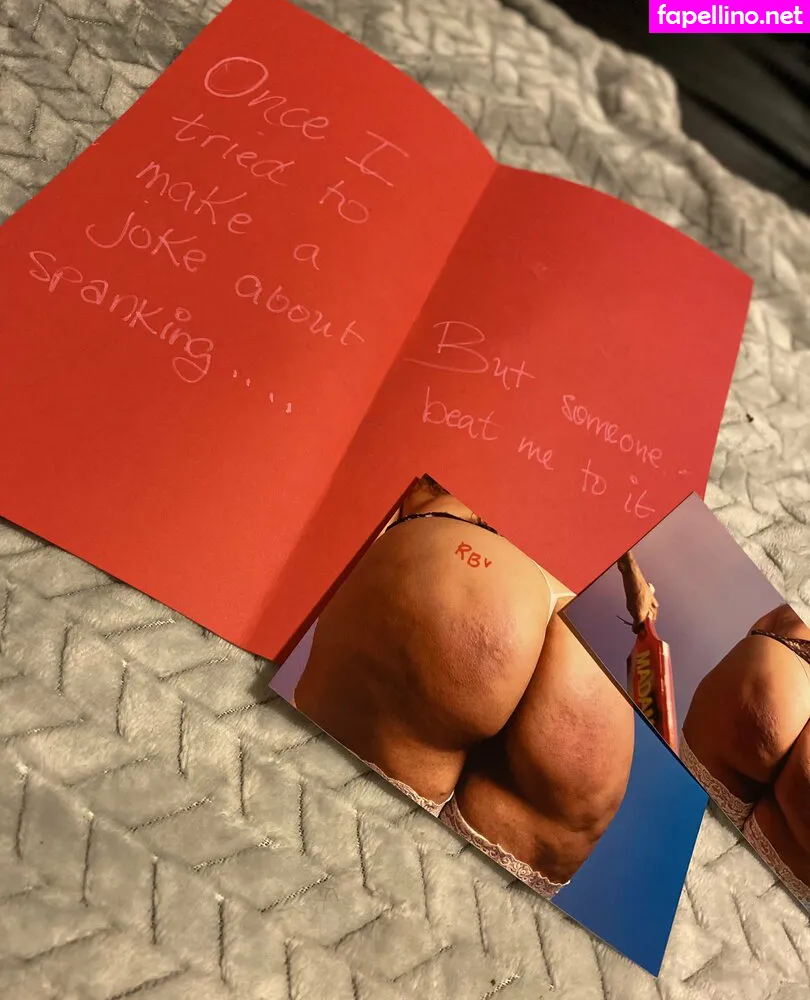 fapellino.net
Once I
tried to
make a
joke about
spanking....
But someone..
beat me to it
RBV
MADAM